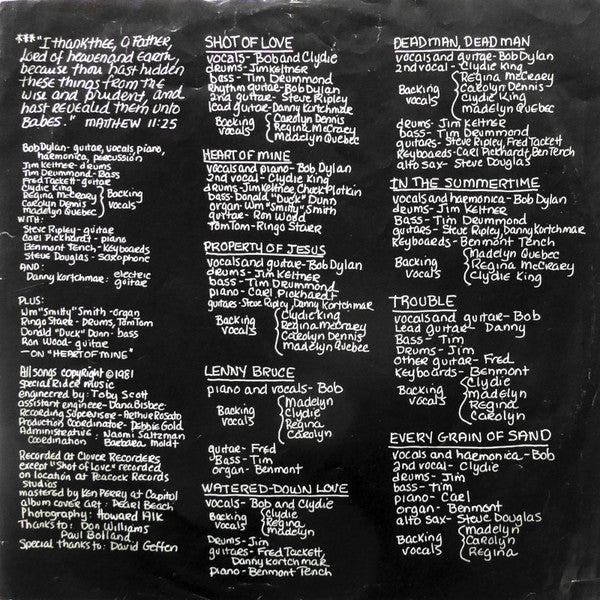 ***"I thank thee, O Father,
lord of heaven and Earth,
because thou hast hidden
these things from the
wise and prudent, and
hast revealed them unto
babes." MATTHEW 11:25
Bob Dylan - guitar, vocals, piano,
harmonica, percussion
Jim Keltner - drums
Tim Drummond - Bass
Fred Tackett - guitar
Clydie King
Regina McCreary
Carolyn Dennis
Madelyn Quebec
Backing
Vocals
WITH:
Steve Ripley - guitar
Carl Pickhardt - piano
Benmont Tench - Keyboards
Steve Douglas - saxophone
AND:
Danny Kortchmar: electric
guitar
PLUS:
Wm "Smitty" Smith - organ
Ringo Starr - Drums, TomTom
Donald "Duck" Dunn - bass
Ron Wood - guitar
— ON "HEART OF MINE"
All songs copyright © 1981
Special Rider music
engineered by: Toby Scott
assistant engineer - Dana Bisbee
Recording Supervisor - Arthur Rosato
Production Coordinator - Debbie Gold
Administrative: Naomi Saltzman
Coordination Barbara Moldt
Recorded at Clover Recorders
except "Shot of Love" recorded
on location at Peacock Records
Studios
mastered by Ken Perry at Capitol
album cover art: Pearl Beach
Photography: Howard Alk
Thanks to: Don Williams
Paul Bolland
Special thanks to: David Geffen
SHOT OF LOVE
vocals - Bob and Clydie
drums - Jim Keltner
bass - Tim Drummond
Rhythm guitar - Bob Dylan
2nd guitar - Steve Ripley
lead guitar - Danny Kortchmar
Backing
vocals
Carolyn Dennis
Regina McCraey
Madelyn Quebec
HEART OF MINE
vocals and piano - Bob Dylan
2nd vocal - Clydie King
drums - Jim Keltner, Chuck Plotkin
bass - Donald "Duck" Dunn
organ - Wm "Smitty" Smith
guitar - Ron Wood
TomTom - Ringo Starr
PROPERTY OF JESUS
vocals and guitar - Bob Dylan
drums - Jim Keltner
bass - Tim Drummond
piano - Carl Pickhardt
guitars - Steve Ripley, Danny Kortchmar
Backing
vocals
Clydie King
Regina McCraey
Carolyn Dennis
Madelyn Quebec
LENNY BRUCE
piano and vocals - Bob
Backing
vocals
Madelyn
Clydie
Regina
Carolyn
guitar - Fred
Bass - Tim
organ - Benmont
WATERED-DOWN LOVE
vocals - Bob and Clydie
Backing
vocals
Clydie
Regina
Madelyn
Drums - Jim
guitars - Fred Tackett,
Danny Kortchmar
piano - Benmont Tench
DEAD MAN, DEAD MAN
vocals and guitar - Bob Dylan
2nd vocal - Clydie King
Backing
vocals
Regina McCreary
Carolyn Dennis
Clydie King
Madelyn Quebec
drums - Jim Keltner
bass - Tim Drummond
guitars - Steve Ripley, Fred Tackett
Keyboards - Carl Pickhardt, Ben Tench
alto sax - Steve Douglas
IN THE SUMMERTIME
vocals and harmonica - Bob Dylan
drums - Jim Keltner
Bass - Tim Drummond
guitars - Steve Ripley, Danny Kortchmar
Keyboards - Benmont Tench
Backing
vocals
Madelyn Quebec
Regina McCreary
Clydie King
TROUBLE
vocals and guitar - Bob
Lead guitar - Danny
Bass - Tim
Drums - Jim
other guitar - Fred
Keyboards - Benmont
Backing
vocals
Clydie
Madelyn
Regina
Carolyn
EVERY GRAIN OF SAND
vocals and harmonica - Bob
2nd vocal - Clydie
drums - Jim
bass - Tim
piano - Carl
organ - Benmont
alto sax - Steve Douglas
Backing
vocals
Madelyn
Carolyn
Regina